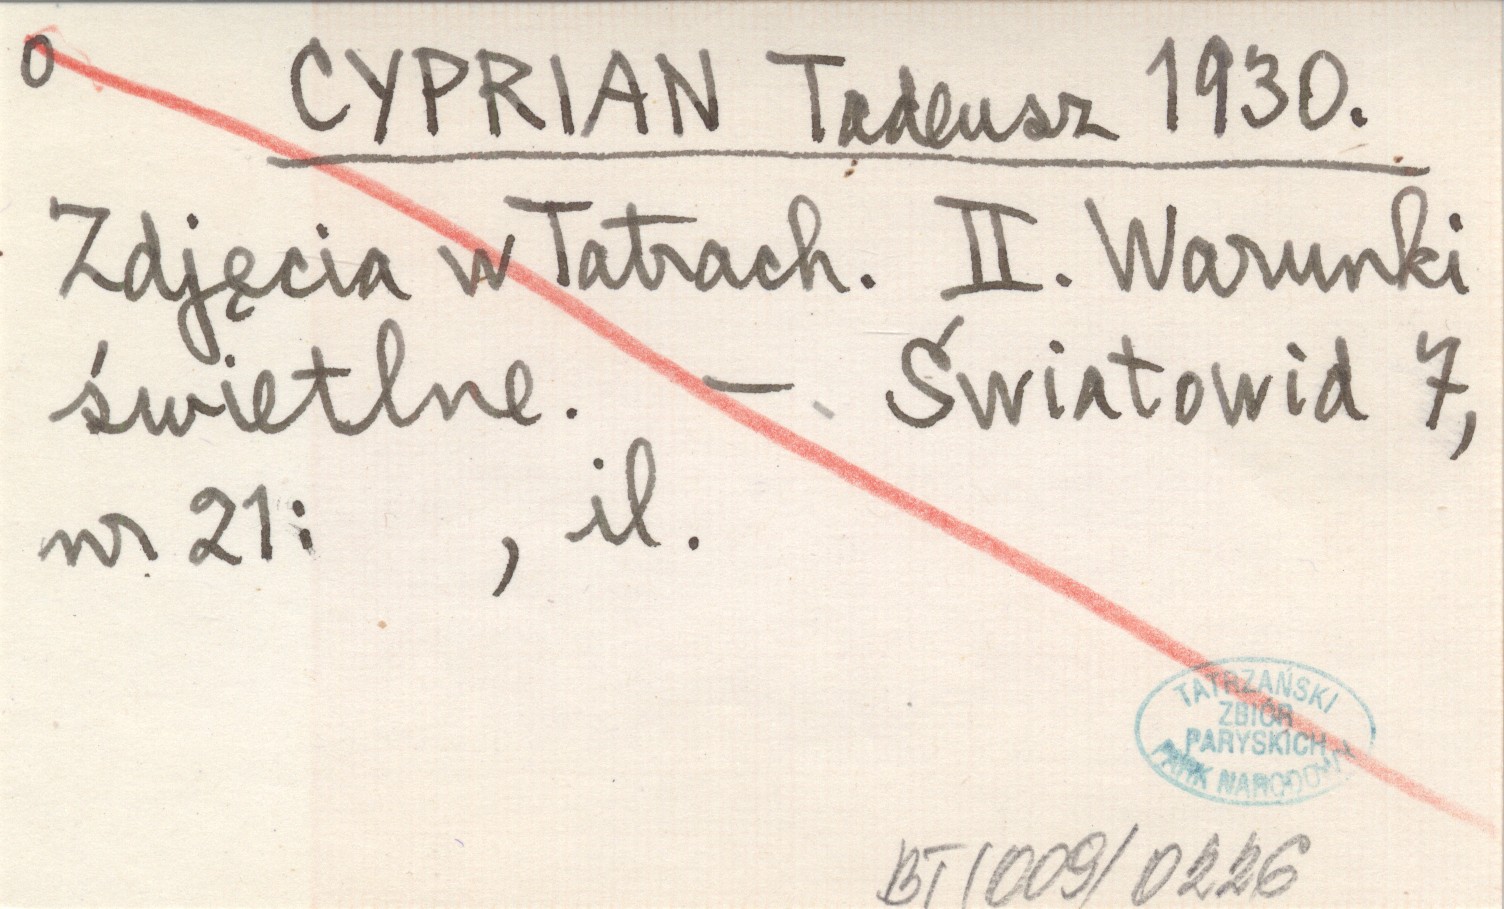 0 CYPRIAN Tadeusz 1930.
Zdjęcia w Tatrach. II. Warunki
świetlne. — Światowid 7,
nr 21: , il.
TATRZAŃSKI
ZBIÓR
PARYSKICH
PARK NARODOWY
BT/009/0226